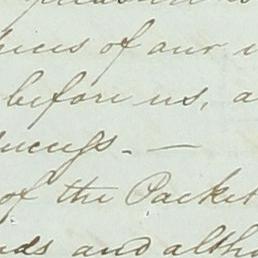 of our
before us, a
success. —
of the Packet
and altho